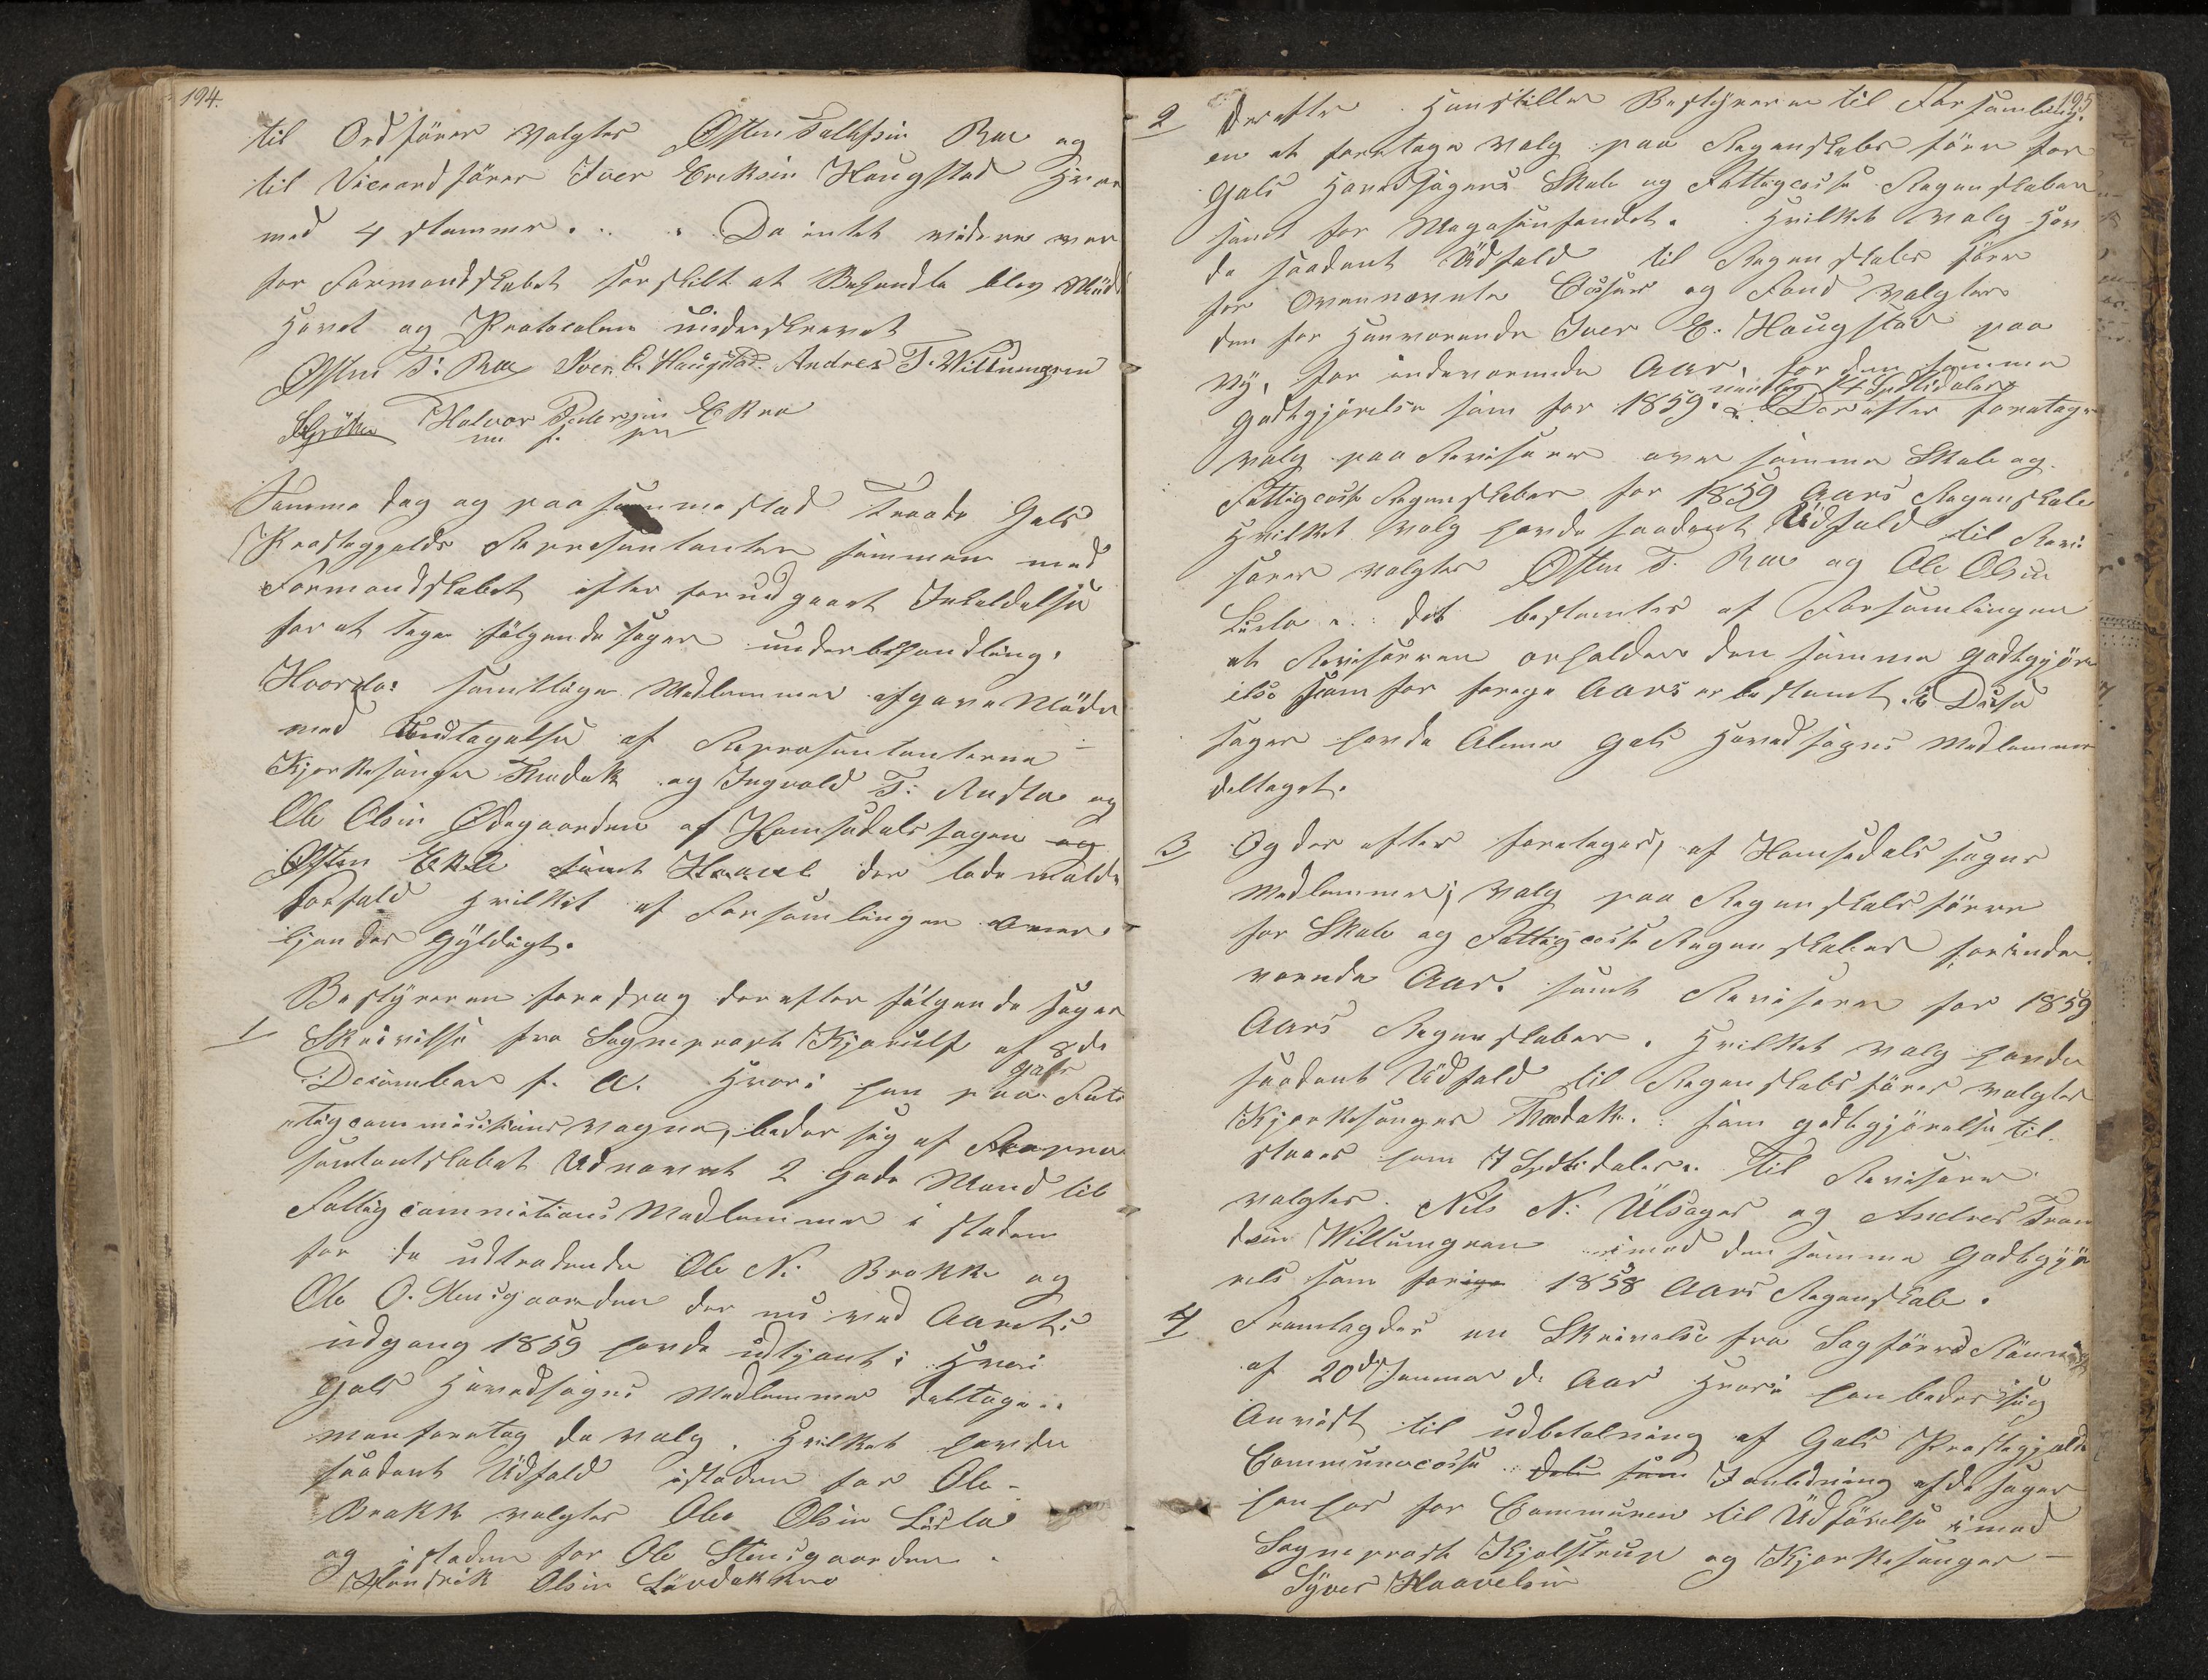 194.
til Ordförer valgtes Østen Tollefsin Roe og
til Viceordförer Iver Eriksin Haugstad Hver
med 4 stemmer. . . Da intet videre var
for Formandskabet særskilt at Behandle blev Möd
Hævet og Protocolen underskrevet
Østen T. Roe Iver E. Haugstad. Andres T. Willumgren
Halvor Pedersin Ekro
m p pen
Samme dag og paa samme stad traade Gols
Præstegjelds Repræsentanter sammen med
Formandskabet efter forudgaaet Inkaldelse
for at tage fölgende sager under behandling.
Hvorda: samtlige Medlemmer afgave Möde
med Undtagelse af Repræsentanterne
Kjerkesanger og Ingvald T. og
Ole Olsin Ødegaarden af Hemsedals sogn og
Østen samt der lode melde
Forfald Hvilket af Forsamlingen aner-
kjendes Gyldigt.
Bestyreren foredrog derefter fölgende sager
1 Skrivelse fra Sogneprest Kjerulf af 8de
December f. A. Hvori han paa Gols Fat-
tigcommissions vegne, beder sig af Repræ
sentantskabet Udnævnt 2 gode Mænd til
Fattigcommissions Medlemmer i steden
for de udtrædende Ole N. Brekke og
Ole O. Stensgaarden der nu ved Aarets
udgang 1859 havde udtjent: Hvori
Gols Hovedsogns Medlemmer deltage..
man foretog da valg. Hvilket havde
saadant Udfald isteden for Ole
Brekk valgtes Ole Olsin Lisla
og isteden for Ole Stensgaarden
Hendrik Olsin
195
2 Derefter Henstiller Bestyreren til Forsamling-
en at foretage valg paa Regenskabs förer for
Gols Hovedsogens Skole og Fattigcasse Regenskaber
samt for Magasinfondet. Hvilket valg Hav
de saadant Udfald til Regenskabs förer
for Ovennævnte Casser og Fond valgtes
den for Henværende Iver E. Haugstad paa
ny, for indeværende Aar, for den samme
Godtgjörelse som for 1859. nemlig 14 Spetiedaler Derefter foretages
valg paa Revisorer over samme Skole og
Fattigcasse Regenskaber for 1859 Aars Regenskab
Hvilket valg havde saadant Udfald til Revi
sorer valgtes Østen T. Roe og Ole Olsin
Lisla .. det bestemtes af Forsamlingen
at Revisorerne erholder den samme godtgjör
else som for forege Aars er bestemt. i Disse
sager havde Alene Gols Hovedsogns Medlemmer
deltaget.
3 Og der efter foretages, af Hemsedals sogns
Medlemmer; valg paa Regenskabs förer
for Skole og Fattigcasse Regenskaber for inde
værende Aar. samt Revisorer for 1859
Aars Regenskaber. Hvilket valg havde
saadant Udfald til Regenskabs förer valgtes
Kjerkesanger som godtgjörelse til
staaes ham 7 Spetidaler.. Til Revisorer
valgtes Nils N. Ulsager og Andres Tron
dsin Willumgren imod den samme Godtgjö
rels som forige 1858 Aars Regenskab.
4 Fremlagdes en Skrivelse fra Sagförer
af 20de Januar d. Aar Hvori han beder sig
Anvist til udbetalning af Gols Præstegjelds
Communecasse Dels som I anledning af de sager
han har for Communen til Udförelse imod
Sogneprest Kjelstrup og Kjerkesanger
Syver Haavelsin